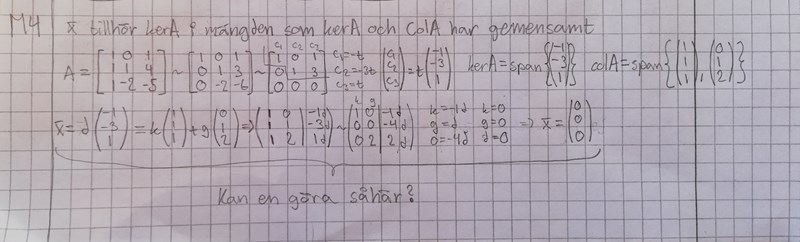 M4 x̄ tillhör kerA i mängden som kerA och ColA har gemensamt
c₁ c₂ c₃
A = [1 0 1; 1 1 4; 1 -2 -5] ~ [1 0 1; 0 1 3; 0 -2 -6] ~ [1 0 1; 0 1 3; 0 0 0] c₁=-t c₂=-3t c₃=t (c₁ c₂ c₃) = t(-1 -3 1) kerA = span{(-1 -3 1)} colA = span{(1 1 1), (0 1 2)}
x̄ = d(-1 -3 1) = k(1 1 1) + g(0 1 2) ⇒ (1 0 | -1d; 1 1 | -3d; 1 2 | 1d) ~ (1 0 | -1d; 0 0 | -4d; 0 2 | 2d) k=-1d g=d 0=-4d k=0 g=0 d=0 ⇒ x̄ = (0 0 0)
Kan en göra såhär?